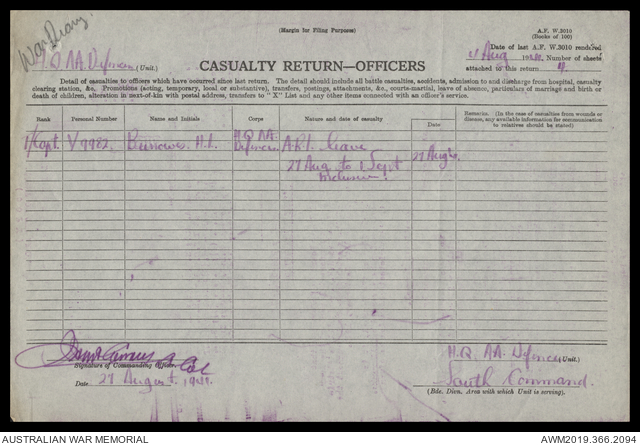 War Diary
(Margin for Filing Purposes)
A.F. W.3010
(Books of 100)
H.Q. AA. Defences (Unit.)
Date of last A.F. W.3010 rendered
Aug 19 Number of sheets
attached to this return
CASUALTY RETURN—OFFICERS
Detail of casualties to officers which have occurred since last return. The detail should include all battle casualties, accidents, admission to and discharge from hospital, casualty
clearing station, &c. Promotions (acting, temporary, local or substantive), transfers, postings, attachments, &c., courts-martial, leave of absence, particulars of marriage and birth or
death of children, alteration in next-of-kin with postal address, transfers to "X" List and any other items connected with an officer's service.
Rank
Personal Number
Name and Initials
Corps
Nature and date of casualty
Date
Remarks. (In the case of casualties from wounds or
disease, any available information for communication
to relatives should be stated)
T/Capt. V 7982. H.L. H.Q. AA. Defences A.R.I. leave 27 Aug
27 Aug to 1 Sept
inclusive.
Lt Col
Signature of Commanding Officer
Date 27 August 1941.
H.Q. AA. Defences (Unit.)
South Command.
(Bde. Divn, Area with which Unit is serving).
AUSTRALIAN WAR MEMORIAL
AWM2019.366.2094